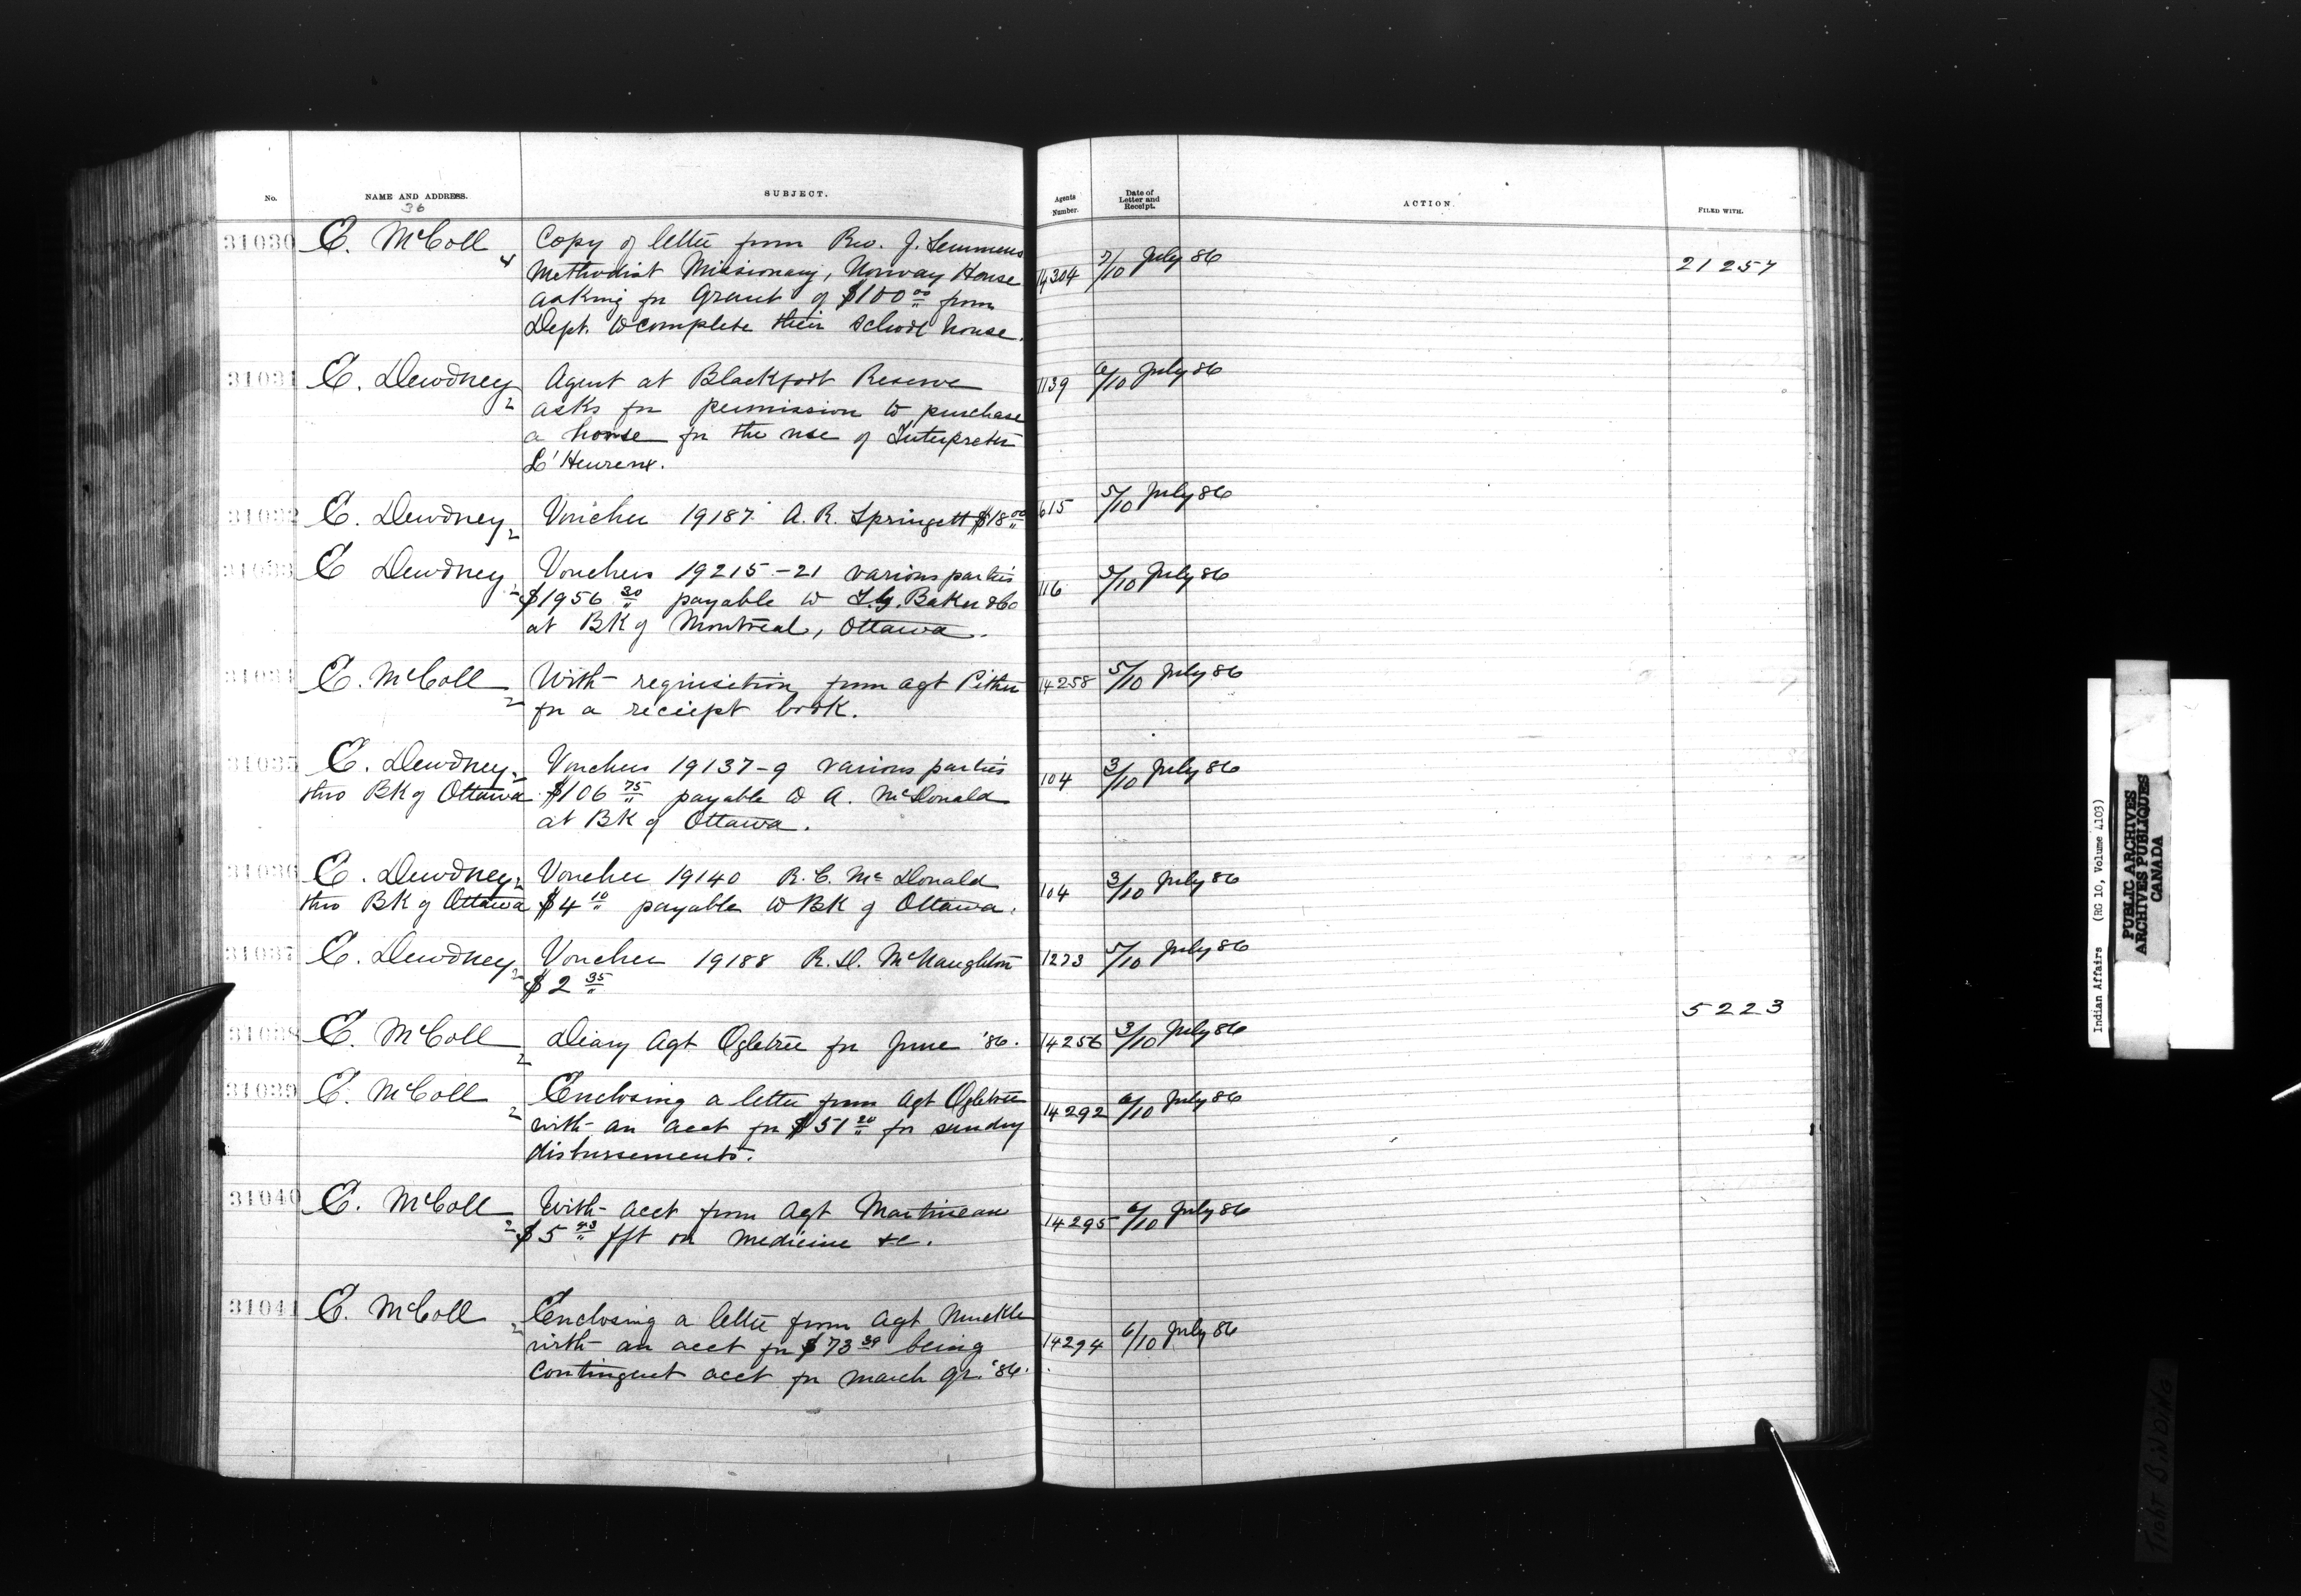 No. NAME AND ADDRESS. SUBJECT. Agents Number. Date of Letter and Receipt. ACTION. FILED WITH.
36
31030 E. McColl 4 Copy of letter from Rev. J. Semmens 14304 7/10 July 86 21257
Methodist Missionary, Norway House
asking for Grant of $100 00 from
Dept. to complete their school house.
31031 E. Dewdney 2 Agent at Blackfoot Reserve 1139 6/10 July 86
asks for permission to purchase
a horse for the use of Interpreter
L'Heureux.
31032 E. Dewdney 2 Voucher 19187 A. R. Springett $18 00 615 5/10 July 86
31033 E Dewdney 2 Vouchers 19215-21 various parties 116 5/10 July 86
$1956 30 payable to I. G. Baker & Co
at BK of Montreal, Ottawa.
31034 E. McColl 2 With requisition from agt Pither 14258 5/10 July 86
for a reciept book.
31035 E. Dewdney 2 Vouchers 19137-9 various parties 104 3/10 July 86
thro BK of Ottawa $106 75 payable to A. McDonald
at BK of Ottawa.
31036 E. Dewdney 2 Voucher 19140 R. C. McDonald 104 3/10 July 86
thro BK of Ottawa $4 10 payable to BK of Ottawa.
31037 E. Dewdney 2 Voucher 19188 R. D. McNaughton 1273 5/10 July 86
$2 35
5223
31038 E. McColl 2 Diary Agt Ogletree for June '86. 14256 3/10 July 86
31039 E. McColl 2 Enclosing a letter from Agt Ogletree 14292 6/10 July 86
with an acct for $51 20 for sundry
disbursements.
31040 E. McColl 2 With acct from Agt Martineau 14295 6/10 July 86
$5 43 fft on medicine &c.
31041 E. McColl 2 Enclosing a letter from Agt Muckle 14294 6/10 July 86
with an acct for $73 39 being
Contingent acct for March qr. '86.
Indian Affairs (RG 10, Volume 4103)
PUBLIC ARCHIVES
ARCHIVES PUBLIQUES
CANADA
TIGHT BINDING